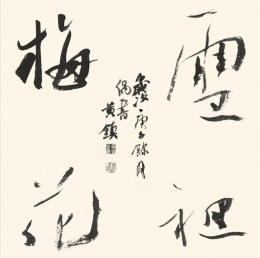 雪裡
梅花
歲次庚子餘月
偶書
黃鎮